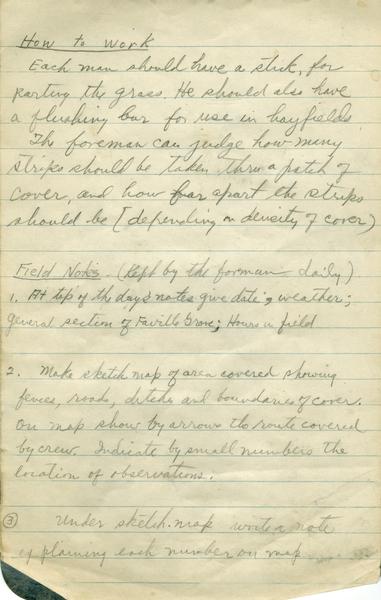 How to Work
Each man should have a stick, for
parting the grass. He should also have
a flushing bar for use in hayfields
The foreman can judge how many
strips should be taken thru a patch of
cover, and how far apart the strips
should be (depending on density of cover)
Field Notes. (Kept by the forman daily)
1. At top of the day's notes give date, weather;
general section of Faville Grove; Hours in field
2. Make sketch map of area covered showing
fences, roads, ditches and boundaries of cover.
On map show by arrows the route covered
by crew. Indicate by small numbers the
location of observations.
3 Under sketch-map write a note
explaining each number on map